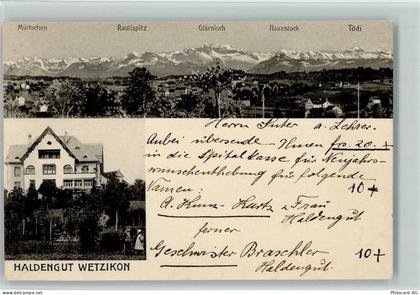 Mürtschen Rautispitz Glärnisch Hausstock Tödi
Herrn Suter a. Lehrer.
Anbei übersende Ihnen frs. 20.-
in die Spitalkasse für Neujahrs-
wunschenthebung für folgende
Namen: 10 +
A. Kunz - Hartz u. Frau
Haldengut
ferner
Geschwister Braschler 10 +
Haldengut.
HALDENGUT WETZIKON